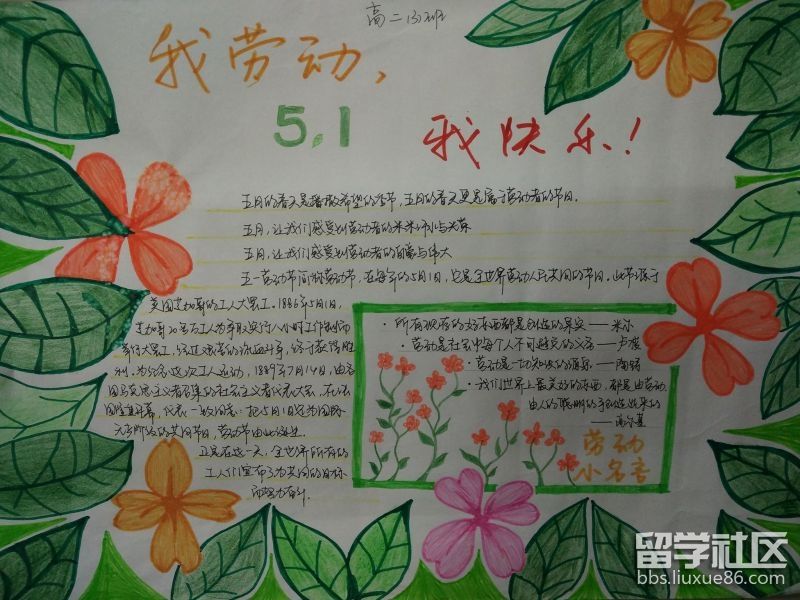 高二(3)班
我劳动,
5.1
我快乐!
五月的春天是播散希望的季节,五月的春天更是属于劳动者的节日。
五月,让我们感受到劳动者的
五月,让我们感受到劳动者的自豪与伟大
五一劳动节简称劳动节,在每年的5月1日,它是全世界劳动人民共同的节日。此节源于
美国芝加哥的工人大罢工。1886年5月1日,
芝加哥20多万工人为争取实行八小时工作制而
举行大罢工,经过艰苦的流血斗争,终于获得胜
利。为纪念这次工人运动,1889年7月14日,由各
国马克思主义者召集的社会主义者代表大会,在法
国隆重开幕,代表一致同意:把5月1日定为国际
无产阶级的共同节日,劳动节由此诞生
正是在这一天,全世界所有的
工人们宣布了为共同的目标
而努力奋斗。
·所有现存的好东西都是创造的果实——米尔
·劳动是社会中每个人不可避免的义务——卢梭
·劳动是一切知识的源泉——陶铸
·我们世界上最美好的东西,都是由劳动
由人的聪明的手创造出来的
——高尔基
劳动
小名言
留学社区
bbs.liuxue86.com